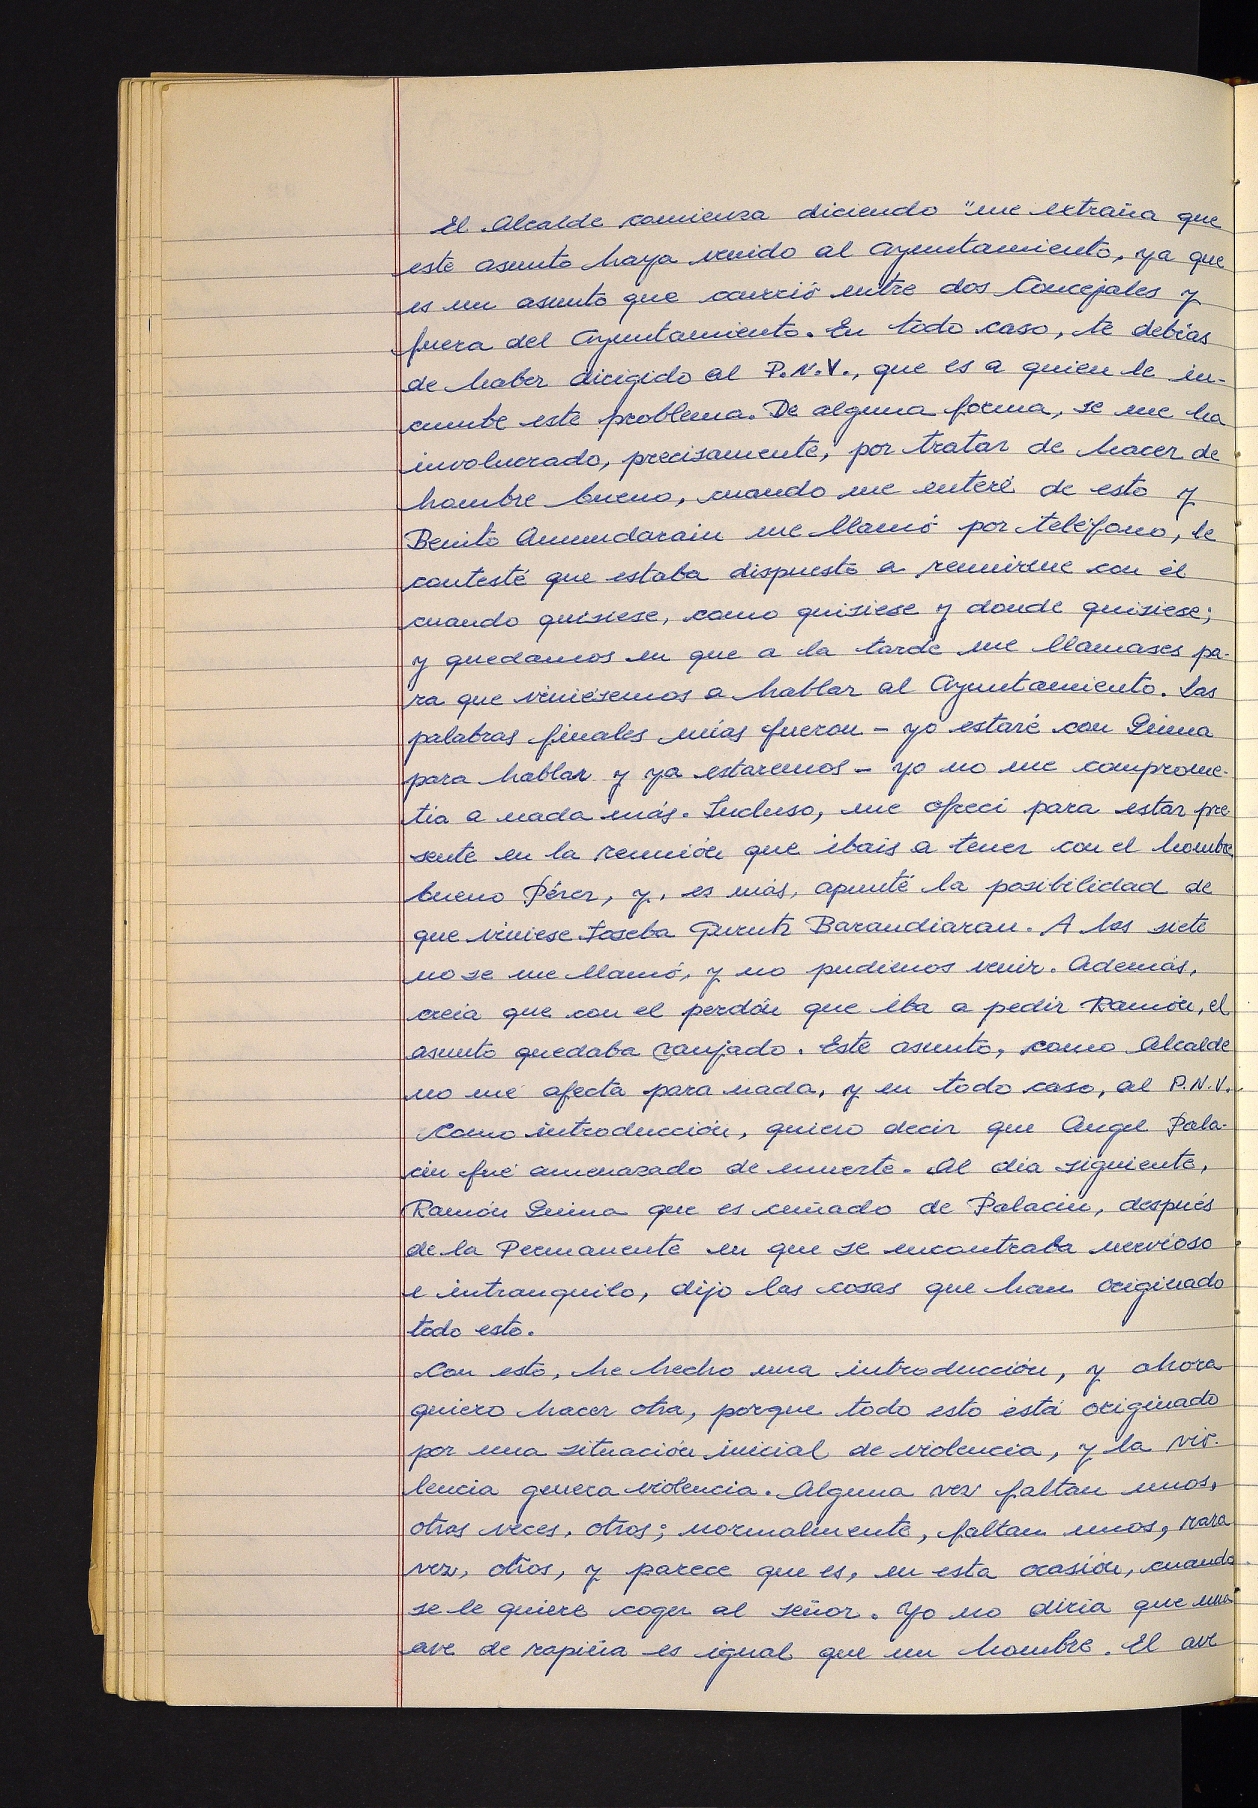 El Alcalde comienza diciendo "me extraña que
este asunto haya venido al Ayuntamiento, ya que
es un asunto que ocurrió entre dos Concejales y
fuera del Ayuntamiento. En todo caso, te debías
de haber dirigido al P.N.V., que es a quien le in-
cumbe este problema. De alguna forma, se me ha
involucrado, precisamente, por tratar de hacer de
hombre bueno, cuando me enteré de esto y
Benito Amundarain me llamó por teléfono, le
contesté que estaba dispuesto a reunirme con él
cuando quisiese, como quisiese y donde quisiese;
y quedamos en que a la tarde me llamases pa-
ra que viniésemos a hablar al Ayuntamiento. Las
palabras finales mías fueron - yo estaré con Guima
para hablar y ya estaremos - yo no me comprome-
tía a nada más. Incluso, me ofrecí para estar pre
sente en la reunión que ibais a tener con el hombre
bueno Pérez, y, es más, apunté la posibilidad de
que viniese Joseba Gurutz Barandiaran. A las siete
no se me llamó, y no pudimos venir. Además,
creía que con el perdón que iba a pedir Ramón, el
asunto quedaba zanjado. Este asunto, como Alcalde
no me afecta para nada, y en todo caso, al P.N.V.
Como introducción, quiero decir que Angel Pala-
cin fué amenazado de muerte. Al día siguiente,
Ramón Guima que es cuñado de Palacin, después
de la Permanente en que se encontraba nervioso
e intranquilo, dijo las cosas que han originado
todo esto.
Con esto, he hecho una introducción, y ahora
quiero hacer otra, porque todo esto está originado
por una situación inicial de violencia, y la vio-
lencia genera violencia. Alguna vez faltan unos,
otras veces, otros; normalmente, faltan unos, rara
vez, otros, y parece que es, en esta ocasión, cuando
se le quiere coger al señor. Yo no diría que una
ave de rapiña es igual que un hombre. El ave